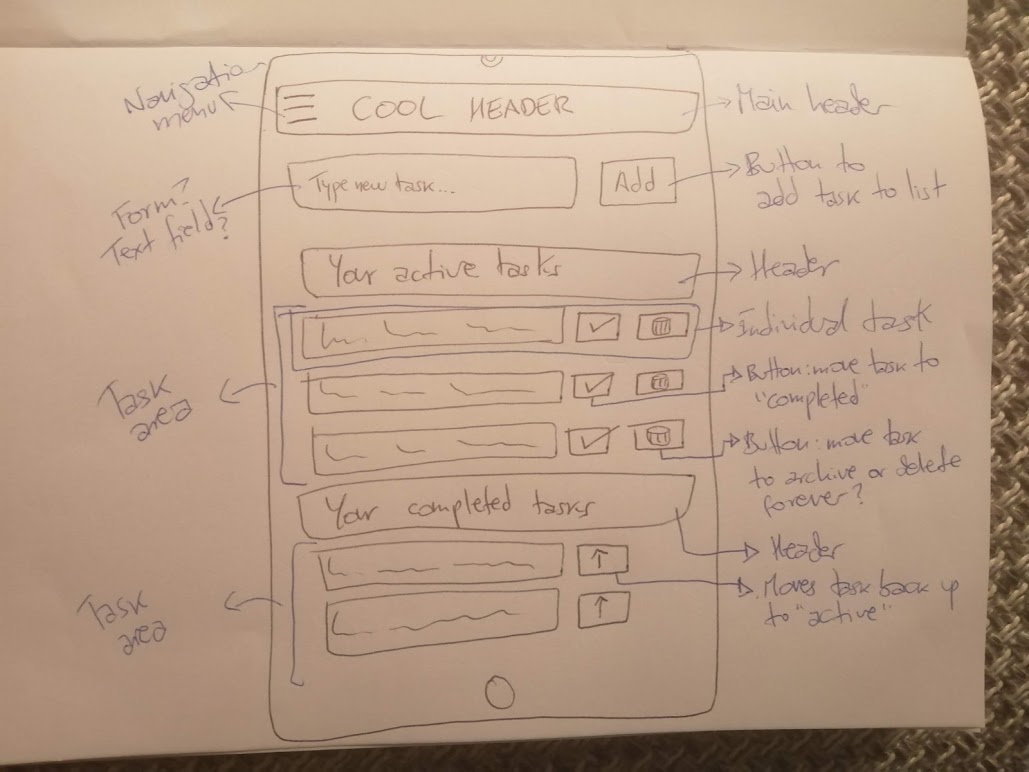 Navigation
menu
COOL HEADER
Main header
Type new task...
Add
Button to
add task to list
Form?
Text field?
Your active tasks
Header
Individual task
Task
area
Button: move task to
"completed"
Button: move task
to archive or delete
forever?
Your completed tasks
Header
Task
area
Moves task back up
to "active"